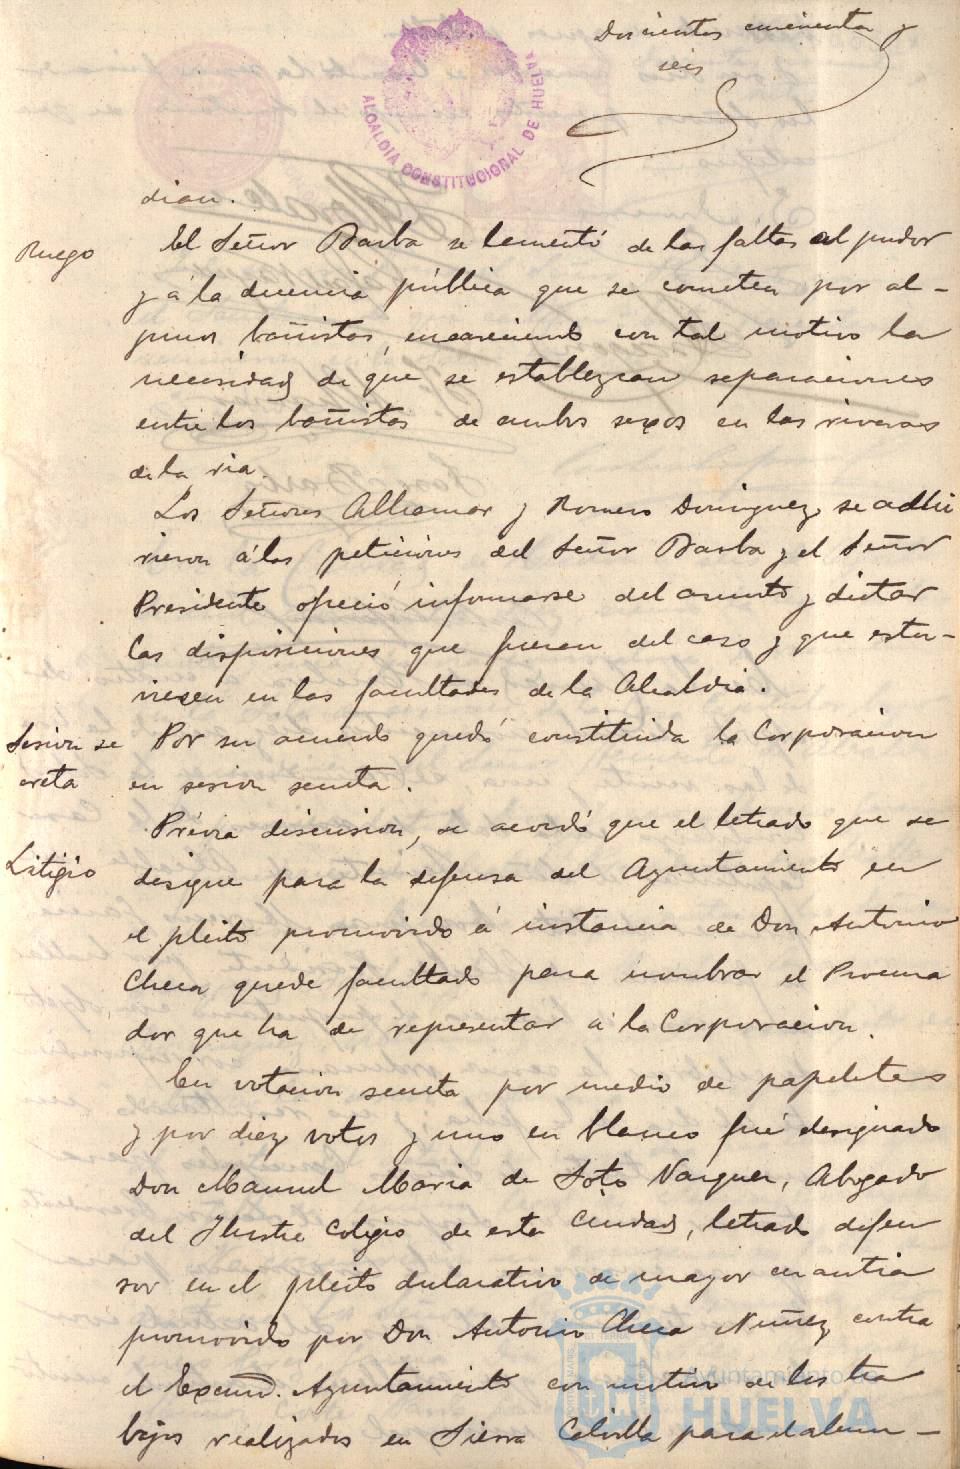 Doscientos cincuenta y
seis
ALCALDIA CONSTITUCIONAL DE HUELVA
dian.
Ruego
El Señor Barba se lamentó de las faltas al pudor
y á la decencia pública que se cometen por al-
gunos bañistas, encareciendo con tal motivo la
necesidad de que se establezcan separaciones
entre los bañistas de ambos sexos en las riveras
de la ria.
Los Señores Alhamar y Romero Dominguez se adhi
rieron á las peticiones del Señor Barba y el Señor
Presidente ofreció informarse del asunto y dictar
las disposiciones que fueran del caso y que estu-
viesen en las facultades de la Alcaldia.
Sesion se
creta
Por su acuerdo quedó constituida la Corporacion
en sesion secreta.
Litigio
Prévia discusion, se acordó que el letrado que se
designe para la defensa del Ayuntamiento en
el pleito promovido á instancia de Don Antonio
Checa quede facultado para nombrar el Procura
dor que ha de representar á la Corporacion.
En votacion secreta por medio de papeletas
y por diez votos y uno en blanco fué designado
Don Manuel Maria de Soto Vazquez, Abogado
del Ilustre Colegio de esta Ciudad, letrado defen
sor en el pleito declarativo de mayor cuantia
promovido por Don Antonio Checa Nuñez contra
el Excmo. Ayuntamiento con motivo de los tra
bajos realizados en Sierra Calvilla para el alum-
Ayuntamiento de
HUELVA